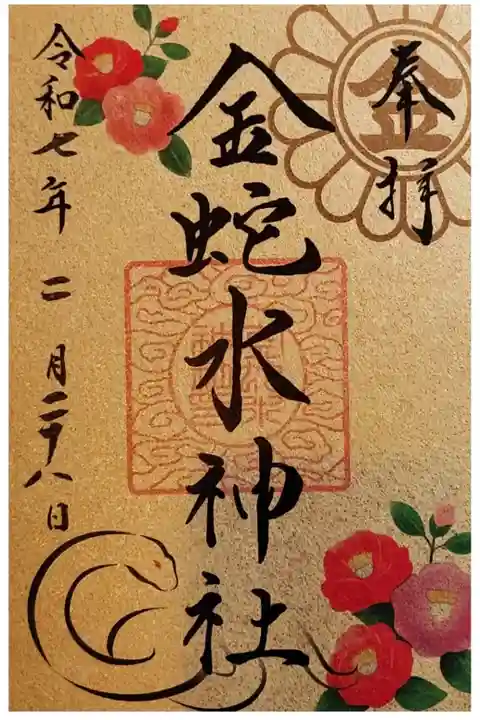 奉拝
金
金蛇水神社
令和七年 二月二十八日